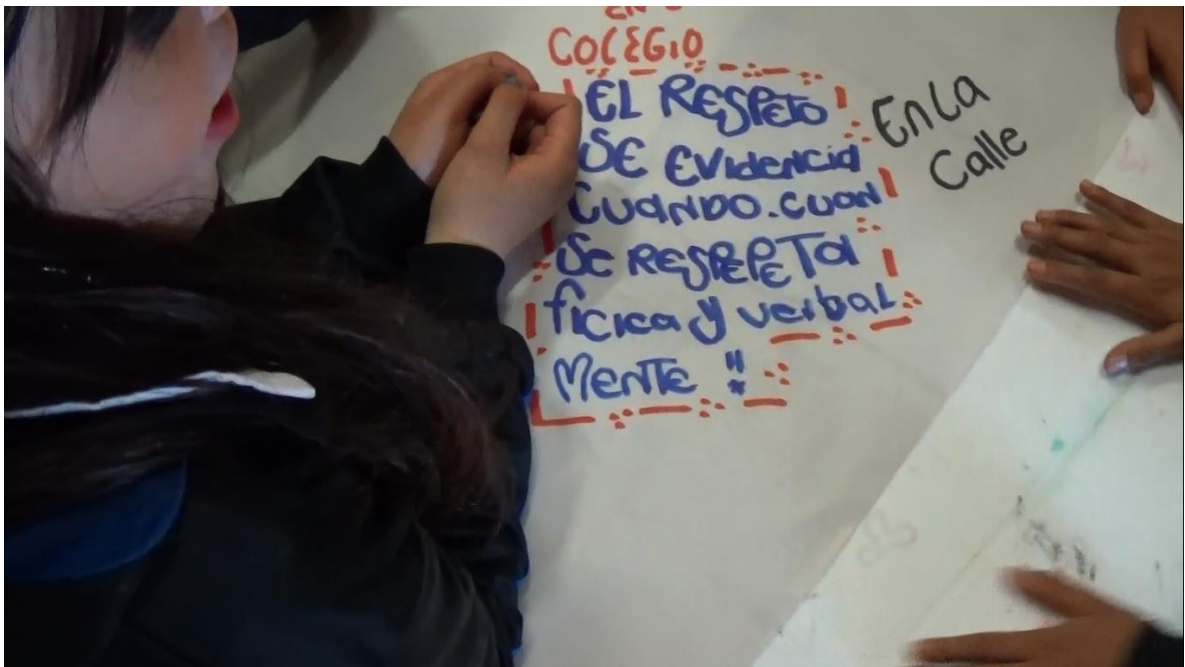 COLEGIO
EL RESPETO
SE EvidenciA
CUANDO.CUAN
SE RESPEPETA
ficica y verbal
MENTE !!
En La
Calle